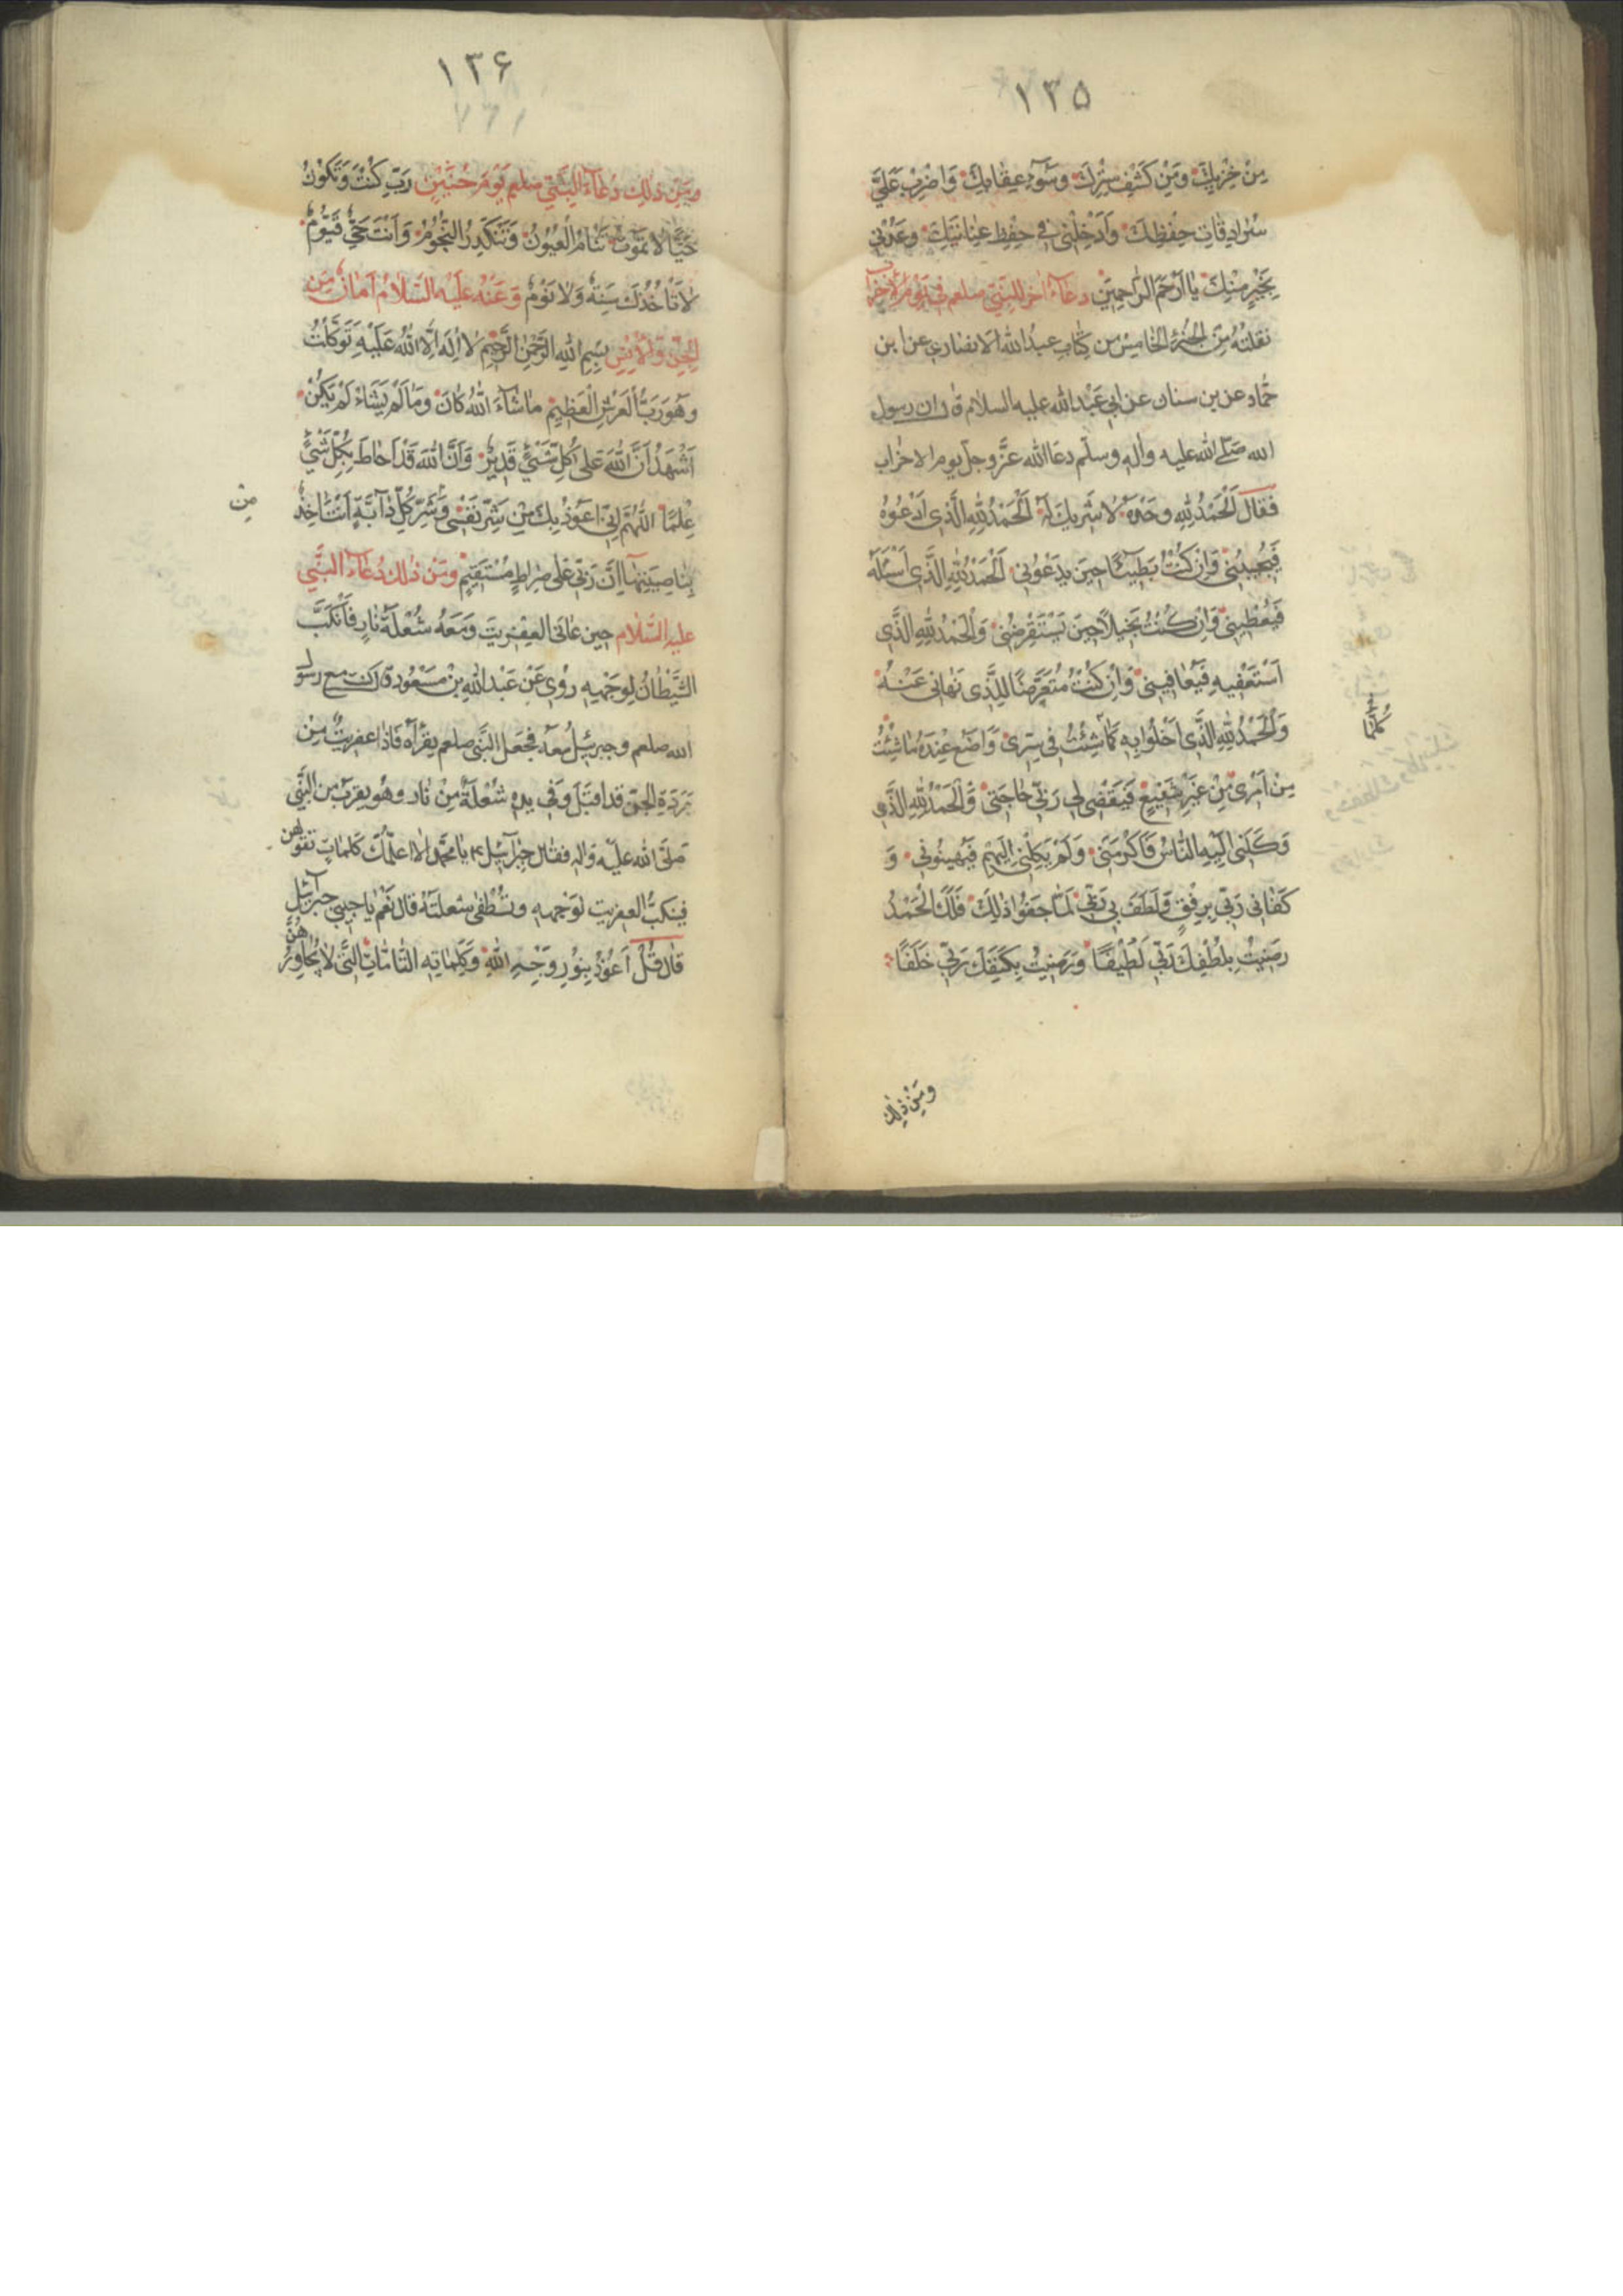 ١٣۵
مِنْ خِزْيِكَ وَمِنْ كَشْفِ سِتْرِكَ وَسُوٓءِ عِقَابِكَ وَاضْرِبْ عَلَيَّ
سُرَادِقَاتِ حِفْظِكَ وَاَدْخِلْنِى فِى حِفْظِ عِنَايَتِكَ وَعُدْنِي
بِخَيْرٍ مِنْكَ يَا اَرْحَمَ الرَّاحِمِيْنَ دعاء اخر للنبى صلعم فى يوم الاحزاب
نقلته من الجزء الخامس من كتاب عبد الله الانصارى عن ابن
حمّاد عن بن سنان عن ابى عَبْد الله عليه السلام قال ان رسول
الله صَلَّى الله عليه واله وسلّم دعا الله عَزَّ وجلّ يوم الاحزاب
فقال اَلْحَمْدُ لِلّٰهِ وحْدَهُ لَا شَرِيكَ لَهُ اَلْحَمْدُ لِلّٰهِ الَّذِى اَدْعُوْهُ
فَيُجِيبُنِى وَاِنْ كُنْتُ بَطِيئًا حِينَ يَدْعُونِى اَلْحَمْدُ لِلّٰهِ الَّذِى اَسْئَلُهُ
فَيُعْطِينِى وَاِنْ كُنْتُ بَخِيلًا حِينَ يَسْتَقْرِضُنِى وَالْحَمْدُ لِلّٰهِ الَّذِى
اَسْتَعْفِيهِ فَيُعَافِينِى وَاِنْ كُنْتُ مُتَعَرِّضًا لِلَّذِى نَهَانِى عَنْهُ
وَالْحَمْدُ لِلّٰهِ الَّذِى اَخْلُوا بِهِ كَمَا شِئْتُ فِى سِرِّى وَاَضَعُ عِنْدَهُ مَا شِئْتُ
كلّما
مِنْ اَمْرِى مِنْ غَيْرِ شَفِيعٍ فَيَقْضِى لِى رَبِّى حَاجَتِى وَالْحَمْدُ لِلّٰهِ الَّذِى
وَكَلَنِى اِلَيْهِ النَّاسُ فَاَكْرَمَنِى وَلَمْ يَكِلْنِى اِلَيْهِمْ فَيُهِينُونِى وَ
كَفَانِى رَبِّى بِرِفْقٍ وَلَطَفَ بِى رَبِّى لَمَّا جَفَوْا ذٰلِكَ فَلَكَ الْحَمْدُ
رَضِيْتُ بِلُطْفِكَ رَبِّى لَطِيفًا وَرَضِيْتُ بِكَنَفِكَ رَبِّى خَلَفًا
ومن ذلك
١٣۶
ومِنْ ذٰلِكَ دُعَاءُ النَّبِىّ صلعم يَوْمَ حُنَيْنٍ رَبِّ كُنْتَ وَتَكُونُ
حَيًّا لَا تَمُوتُ تَنَامُ الْعُيُونُ وَتَنْكَدِرُ النُّجُومُ وَاَنْتَ حَىٌّ قَيُّومٌ
لَا تَأْخُذُكَ سِنَةٌ وَلَا نَوْمٌ وَعَنْهُ عَلَيْهِ السَّلَامُ اَمَانٌ مِنَ
الْجِنِّ وَالْاِنْسِ بِسْمِ اللهِ الرَّحْمٰنِ الرَّحِيْمِ لَا اِلٰهَ اِلَّا اللهُ عَلَيْهِ تَوَكَّلْتُ
وهُوَ رَبُّ الْعَرْشِ الْعَظِيْمِ مَا شَآءَ اللهُ كَانَ وَمَا لَمْ يَشَاءْ لَمْ يَكُنْ
اَشْهَدُ اَنَّ اللهَ عَلَى كُلِّ شَىْءٍ قَدِيْرٌ وَاَنَّ اللهَ قَدْ اَحَاطَ بِكُلِّ شَىْءٍ
عِلْمًا اَللّٰهُمَّ اِنِّى اَعُوْذُ بِكَ مِنْ شَرِّ نَفْسِى وَشَرِّ كُلِّ دَآبَّةٍ اَنْتَ اٰخِذٌ
مِنْ
بِنَاصِيَتِهَا اِنَّ رَبِّى عَلَى صِرَاطٍ مُسْتَقِيْمٍ ومِنْ ذٰلك دُعَاءُ النَّبِى
عليه السّلام حين عاتى العفريت وَمَعَهُ شُعْلَةُ نَارٍ فَانْكَبَّ
الشَّيْطَانُ لِوَجْهِهِ رُوِىَ عَنْ عَبْدِ اللهِ بْنِ مَسْعُود قال كنت مع رسول
الله صلعم وجبرئيل معه فجعل النَّبى صلعم يقرأه فاذا عفريتٌ مِنْ
مَرَدَةِ الجنّ قد اقبَلَ وَفى يده شُعْلَةٌ مِنْ نار وهو يقرب من النَّبى
صَلَّى الله عليْه واله فقال جبرآئيل يا محمّد الا اعلّمك كلماتٍ تقولهن
فينكبّ العفريت لوَجْههِ وتُطْفى شعلته قال نَعَم يا حبيبى جبرآئيل
قال قُلْ اَعُوذُ بِنُوْرِ وَجْهِ اللهِ وَكَلِمَاتِهِ التَّامَّاتِ الَّتِى لَا يُجَاوِزُهُنَّ